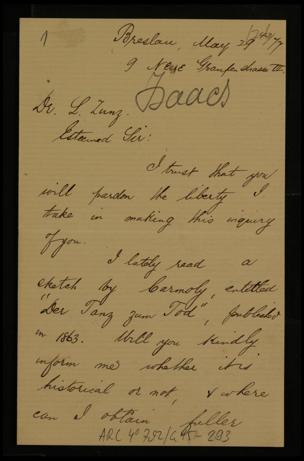 1
Breslau, May 29 /77
9 Neue Graupenstrasse III.
Isaacs
Dr. L. Zunz.
Esteemed Sir:
I trust that you
will pardon the liberty I
take in making this inquiry
of you.
I lately read a
sketch by Carmoly, entitled
"Der Tanz zum Tod", published
in 1863. Will you kindly
inform me whether it is
historical or not, & where
can I obtain fuller
ARC 4° 792/G15-293